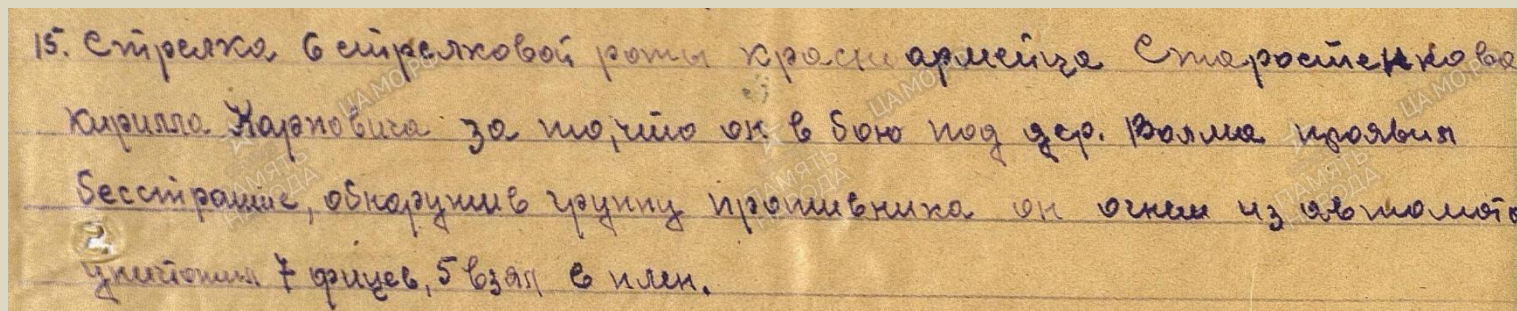 15. Стрелка 6 стрелковой роты красноармейца Старостенкова
Кирилла Карповича за то, что он в бою под дер. Волма проявил
бесстрашие, обнаружив группу противника он огнем из автомата
уничтожил 7 фрицев, 5 взял в плен.